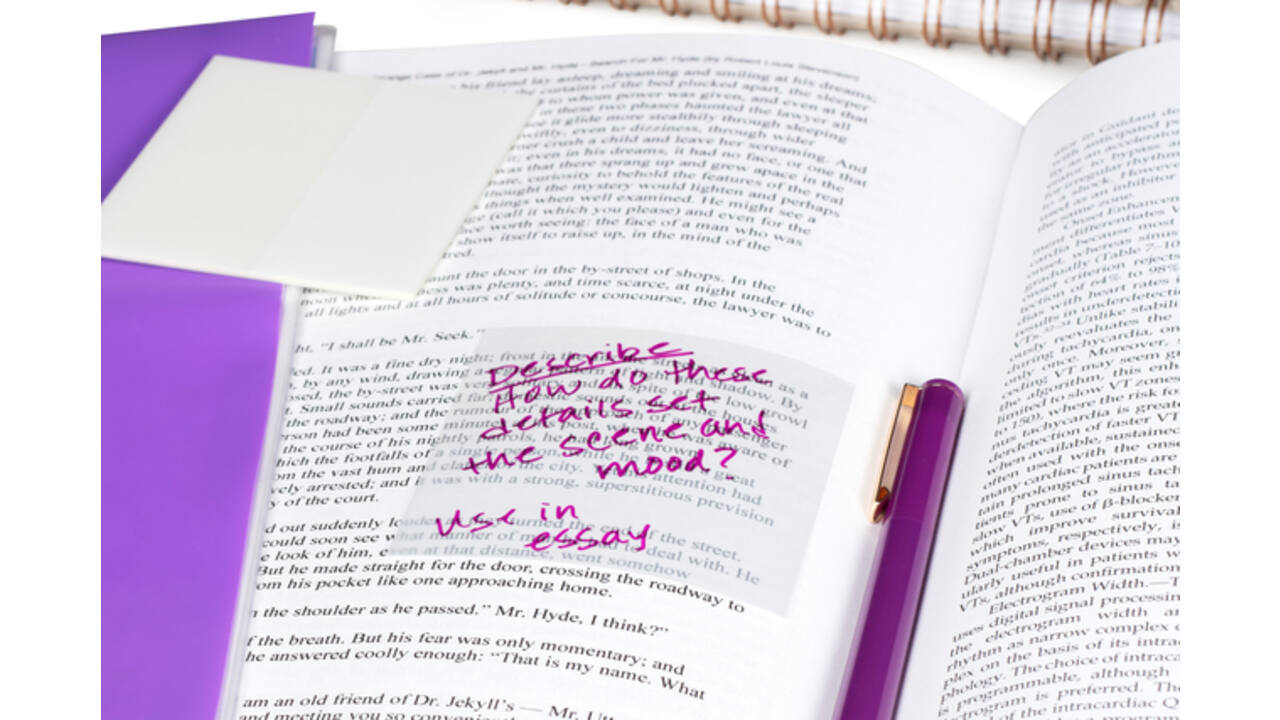 Strange Case of Dr. Jekyll and Mr. Hyde - Search For Mr. Hyde (by Robert Louis Stevenson)
his friend lay asleep, dreaming and smiling at his dreams;
the curtains of the bed plucked apart, the sleeper
to whom power was given, and even at that
in these two phases haunted the lawyer all
see it glide more stealthily through sleeping
swiftly, even to dizziness, through wider
corner crush a child and leave her screaming. And
it; even in his dreams, it had no face, or one that
was that there sprang up and grew apace in the
nate, curiosity to behold the features of the real
thought the mystery would lighten and perhaps
things when well examined. He might see a
ge (call it which you please) and even for the
ace worth seeing: the face of a man who was
show itself to raise up, in the mind of the
tred.
aunt the door in the by-street of shops. In the
ness was plenty, and time scarce, at night under the
all lights and at all hours of solitude or concourse, the lawyer was to
ht, "I shall be Mr. Seek."
ed. It was a fine dry night; frost in the
, by any wind, drawing a
shadow. By
osed, the by-street was very solitary and
spite of the low growl
t. Small sounds carried far;
sounds out
the houses
the roadway; and the rumour of the
of any passenger
rson had been some minutes
post, when
was aware of
the course of his nightly patrols, he had
grown
hich the footfalls of a single person, while he
great
om the vast hum and clatter of the city.
attention had
vely arrested; and it was with a strong, superstitious prevision
y of the court.
Describe
How do these
details set
the scene and
mood?
Use in
essay
d out suddenly louder as they turned the end of the street.
could soon see what manner of man he had to deal with. He
e look of him, even at that distance, went somehow
But he made straight for the door, crossing the roadway to
om his pocket like one approaching home.
n the shoulder as he passed." Mr. Hyde, I think?"
f the breath. But his fear was only momentary; and
he answered coolly enough: "That is my name. What
am an old friend of Dr. Jekyll's — Mr. Utt
and meeting you so convenient
ator in Guidant de
with anticipated p
ty as an accelerator
ventor to bypass a
for irregular rhythm
to a shock. Howeve
used as an inhibitor
the same zone.
Onset Enhancem
ment differentiates V
cardia because most
onset, whereas sinus
gradually (Table 7–10
onset criterion rejects
tection of 64% to 98%
dias with heart rates i
results in underdetecti
VTs. Unlike stabili
ously reevaluates the
during tachycardia, on
only once. Moreover,
ceding VT may seem gr
algorithm, this enh
limited to slow VT zones
to 150), where the risk fo
nus tachycardia is greate
derdetection of faster VT
when available, sustained
often used with the onse
many cardiac patients are
tain prolonged sinus tach
tients prone to sinus ta
slow VTs, use of β-blocker
which improve survival
symptoms, respectively, is
Dual-chamber devices may
ularly useful in patients w
VTs, although confirmation
Electrogram Width.—T
uses digital signal processin
the electrogram width an
rhythm as narrow complex o
plex on the basis of its intrac
phology. The choice of intraca
is programmable, although
ectrogram is preferred. The
of the intracardiac Q